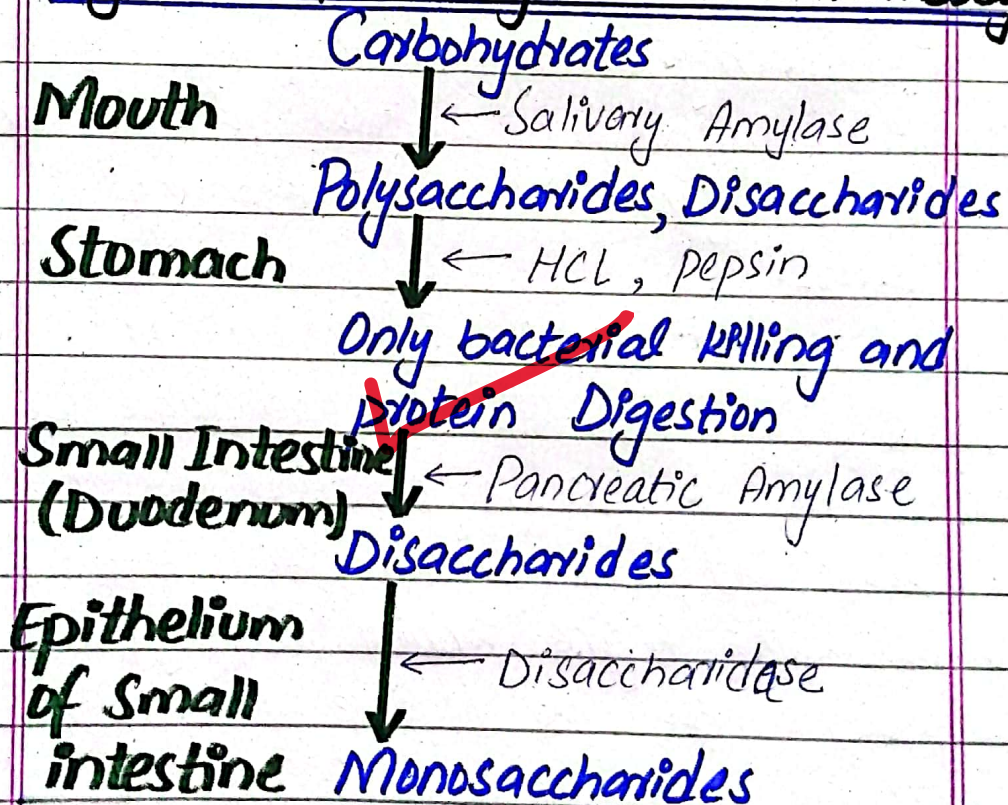 Carbohydrates
Mouth ← Salivary Amylase
Polysaccharides, Disaccharides
Stomach ← HCL, pepsin
Only bacterial killing and
protein Digestion
Small Intestine
(Duodenum) ← Pancreatic Amylase
Disaccharides
Epithelium
of Small ← Disaccharidase
intestine Monosaccharides